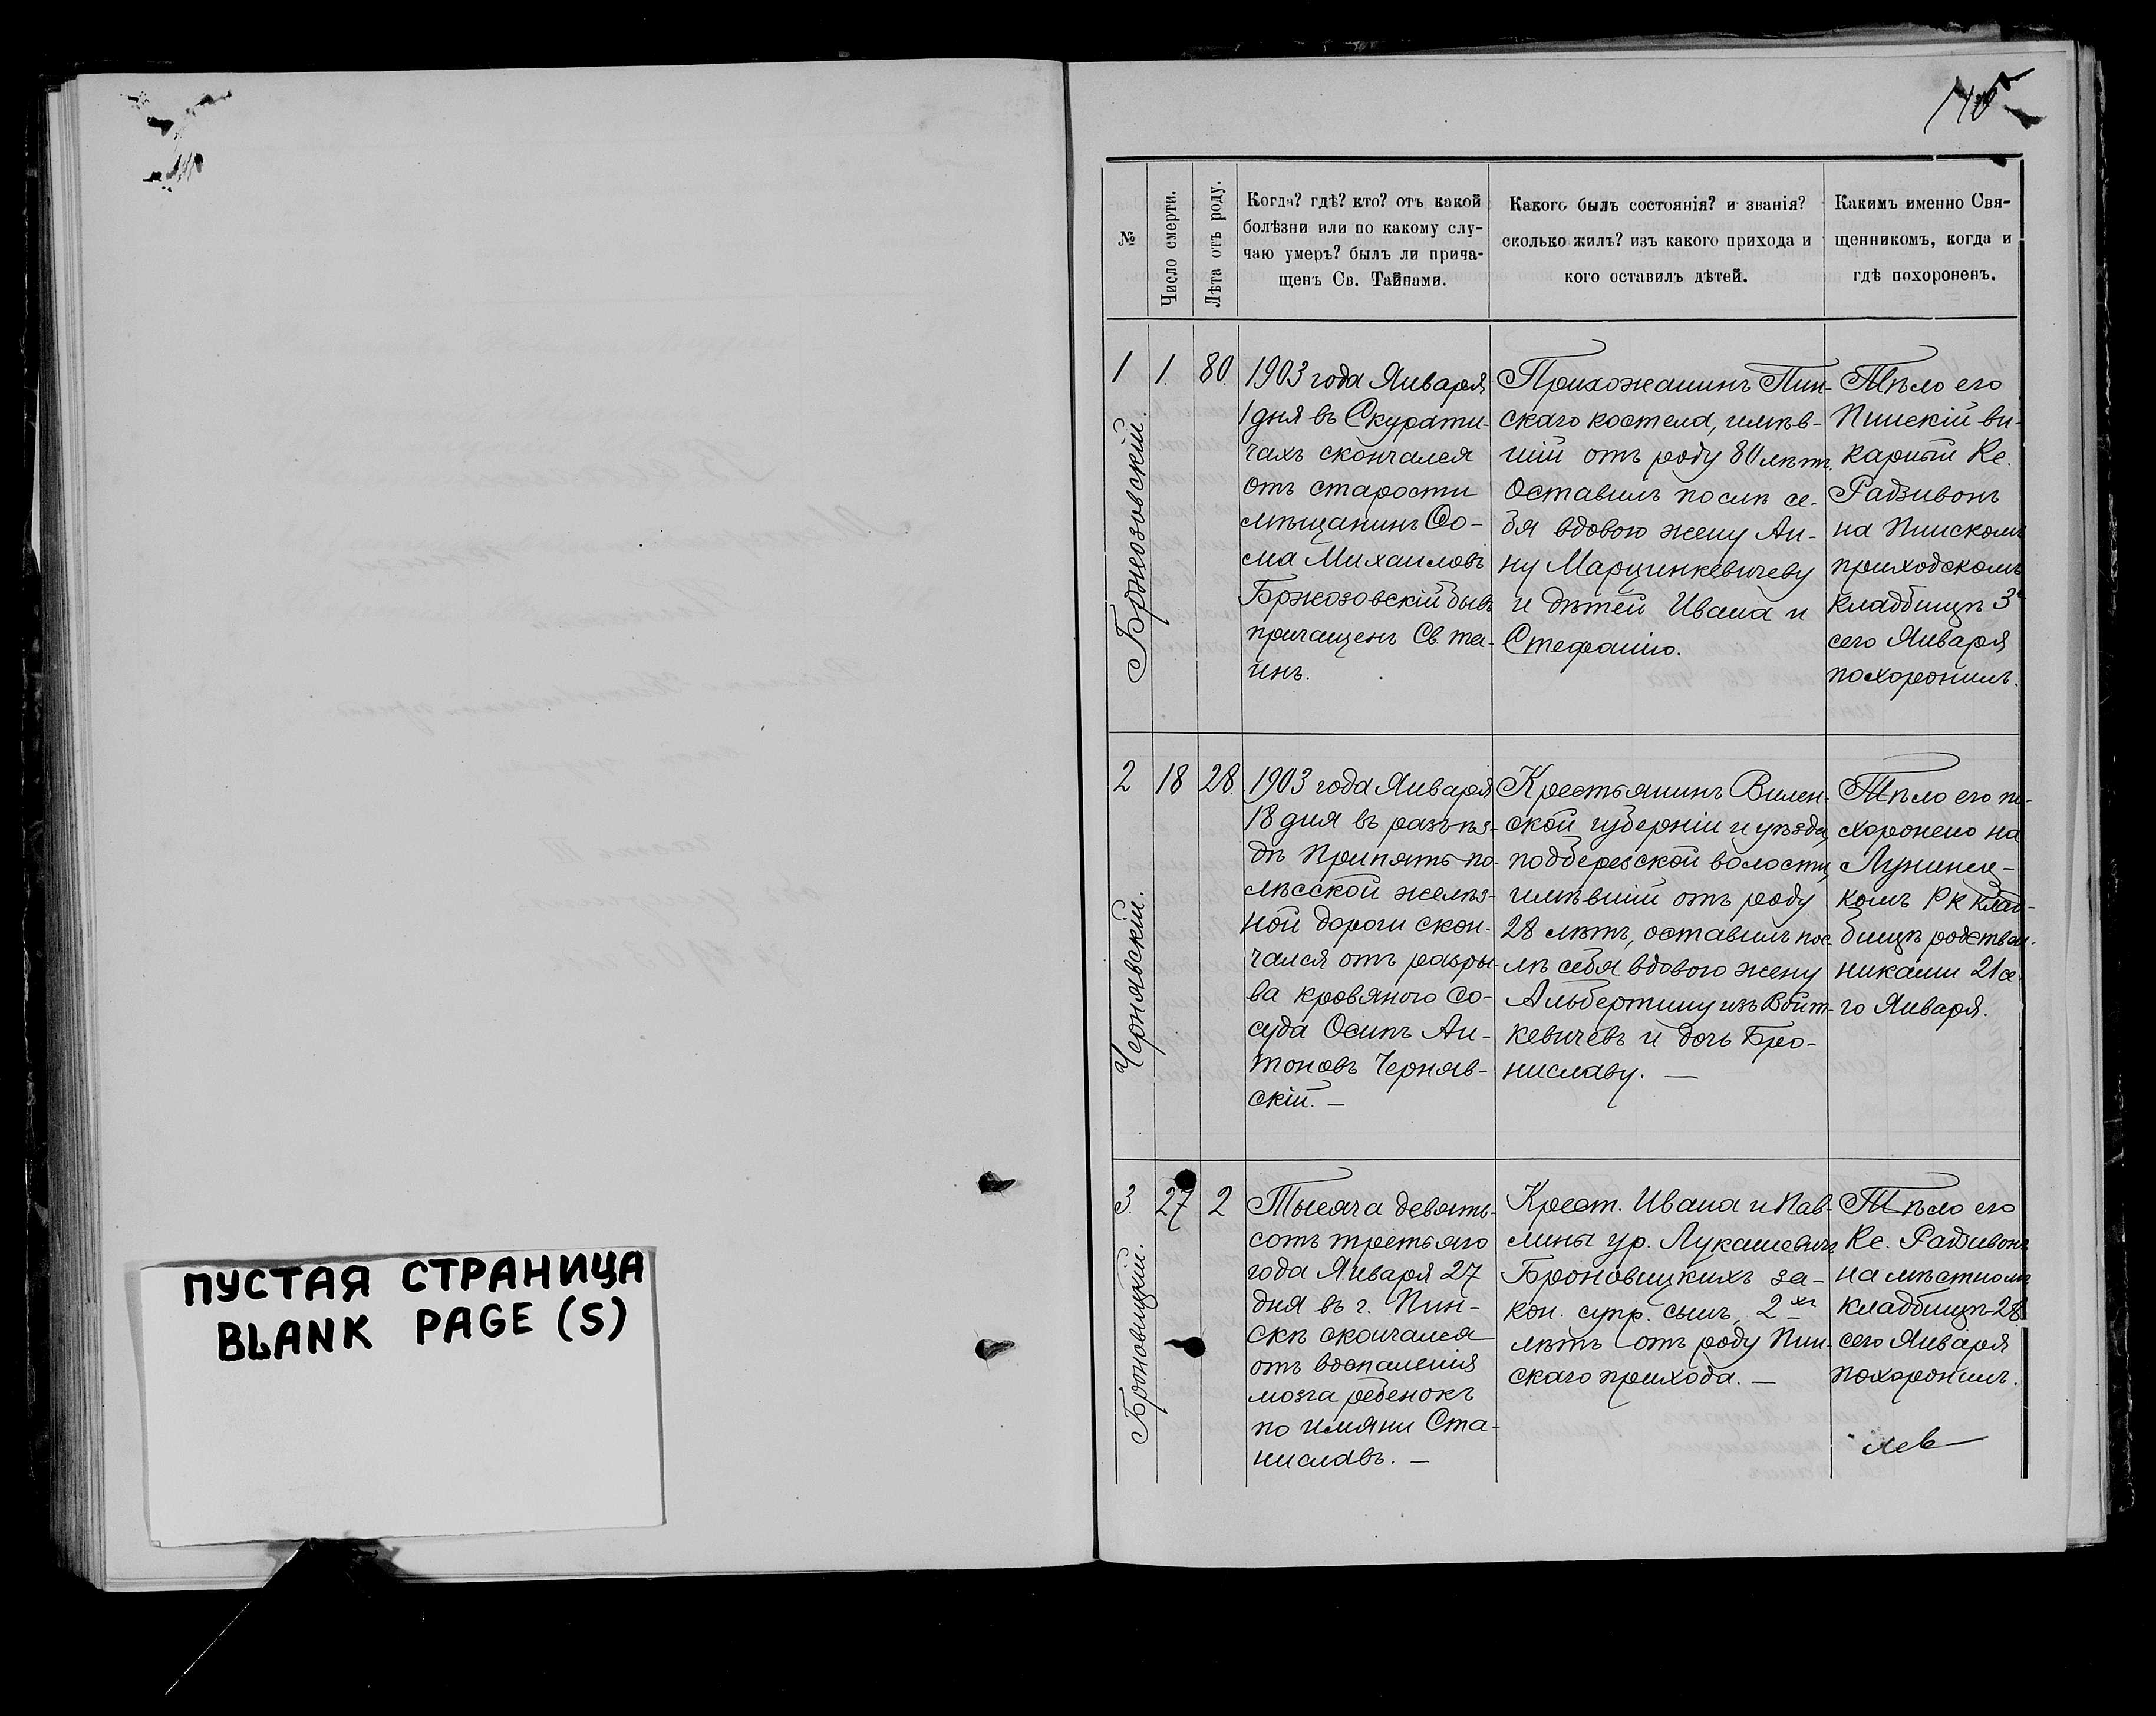 ПУСТАЯ СТРАНИЦА
BLANK PAGE (S)
№
Число смерти.
Лѣта отъ роду.
Когда? гдѣ? кто? отъ какой
болѣзни или по какому слу-
чаю умеръ? былъ ли прича-
щенъ Св. Тайнами.
Какого былъ состоянія? и званія?
сколько жилъ? изъ какого прихода и
кого оставилъ дѣтей.
Какимъ именно Свя-
щенникомъ, когда и
гдѣ похороненъ.
1
Бржозовскій.
1.
80.
1903 года Января
1 дня въ Скурати-
чахъ скончался
отъ старости
мѣщанинъ Ѳо-
ма Михаиловъ
Бржозовскій бывъ
причащенъ Св. та-
инъ.
Прихожанинъ Пин-
скаго костела, имѣв-
шій отъ роду 80 лѣтъ.
Оставилъ послѣ се-
бя вдовою жену Ан-
ну Марцинкевичеву
и дѣтей Ивана и
Стефанію.
Тѣло его
Пинскій ви-
карный Кс.
Радзивонъ
на Пинскомъ
приходскомъ
кладбищѣ 3
сего Января
похоронилъ.
2
Чернявскій.
18
28.
1903 года Января
18 дня въ разъѣз-
дѣ Припять по-
лѣсской желѣз-
ной дороги скон-
чался отъ разры-
ва кровяного со-
суда Осипъ Ан-
тоновъ Черняв-
скій. —
Крестьянинъ Вилен-
ской губерніи и уѣзда,
подберезской волости,
имѣвшій отъ роду
28 лѣтъ, оставилъ пос-
лѣ себя вдовою жену
Альбертину изъ Войт-
кевичевъ и дочь Бро-
ниславу. —
Тѣло его по-
хоронено на
Лунинец-
комъ РК клад-
бищѣ родствен-
никами 21 се-
го Января.
3.
Броновицкій.
27
2
Тысяча девять-
сотъ третьяго
года Января 27
дня въ г. Пин-
скѣ скончался
отъ воспаленія
мозга ребенокъ
по имяни Ста-
ниславъ. —
Крест. Ивана и Пав-
лины ур. Лукашевичъ
Броновицкихъ за-
кон. супр. сынъ, 2хъ
лѣтъ отъ роду Пин-
скаго прихода. —
Тѣло его
Кс. Радзивонъ
на мѣстномъ
кладбищѣ 28
сего Января
похоронилъ.